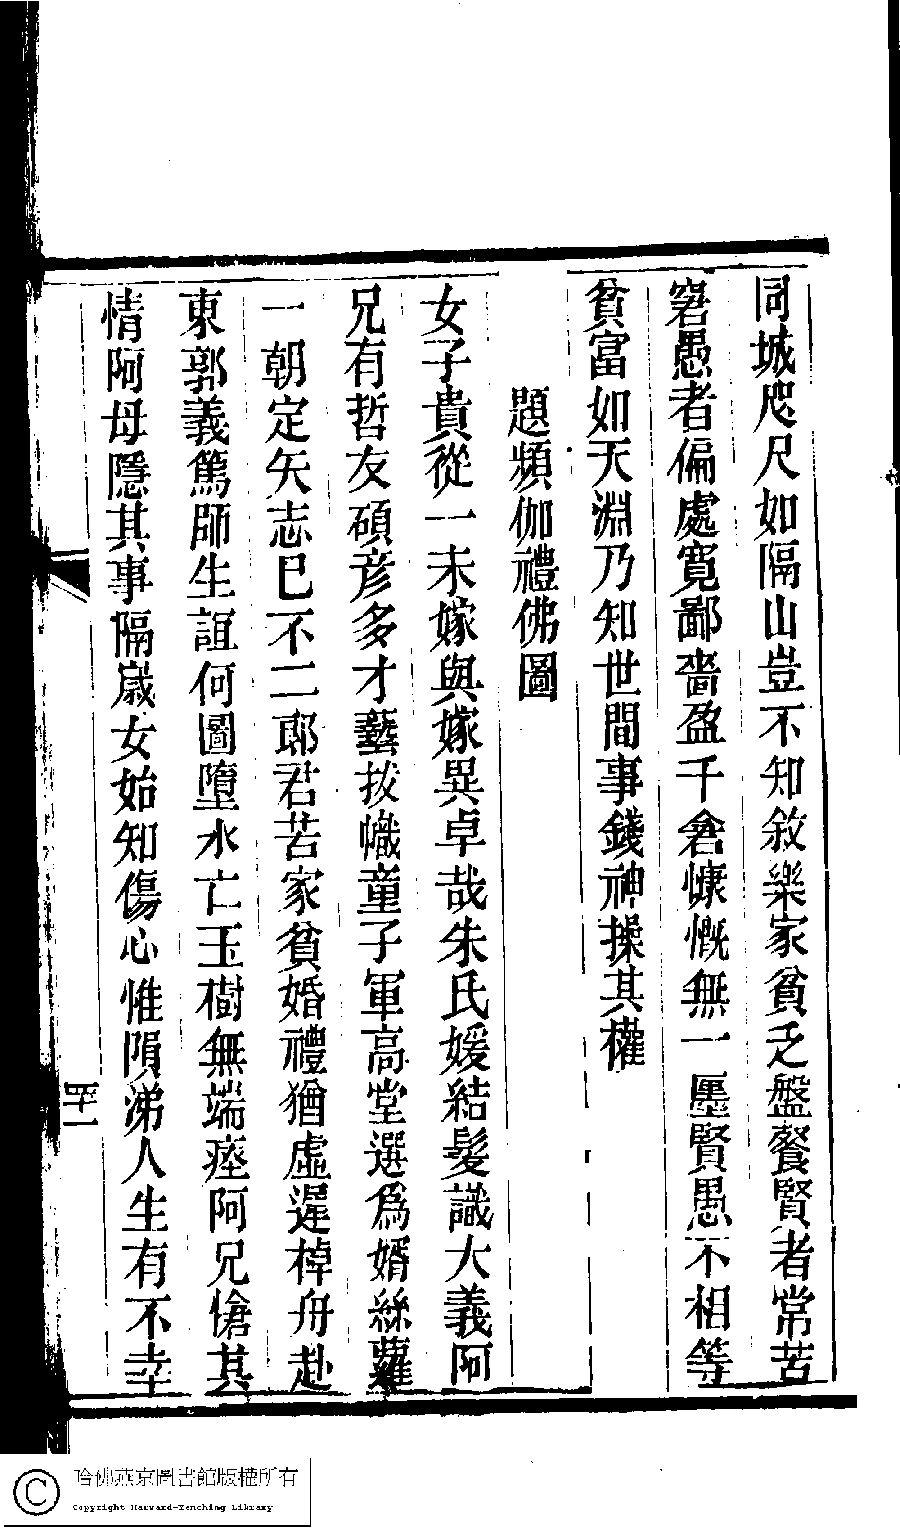 同城咫尺如隔山豈不知敘樂家貧乏盤餐賢者常苦
窘愚者偏處寬鄙嗇盈千倉慷慨無一廛賢愚不相等
貧富如天淵乃知世間事錢神操其權
題頻伽禮佛圖
女子貴從一未嫁與嫁異卓哉朱氏媛結髮識大義阿
兄有哲友碩彥多才藝拔幟童子軍高堂選為婿絲蘿
一朝定矢志巳不二郎君苦家貧婚禮猶虛遲棹舟赴
東郭義篤師生誼何圖墮水亡玉樹無端瘞阿兄愴其
情阿母隱其事隔歲女始知傷心惟隕涕人生有不幸
四十一
哈佛燕京圖書館版權所有
Copyright Harvard-Yenching Library